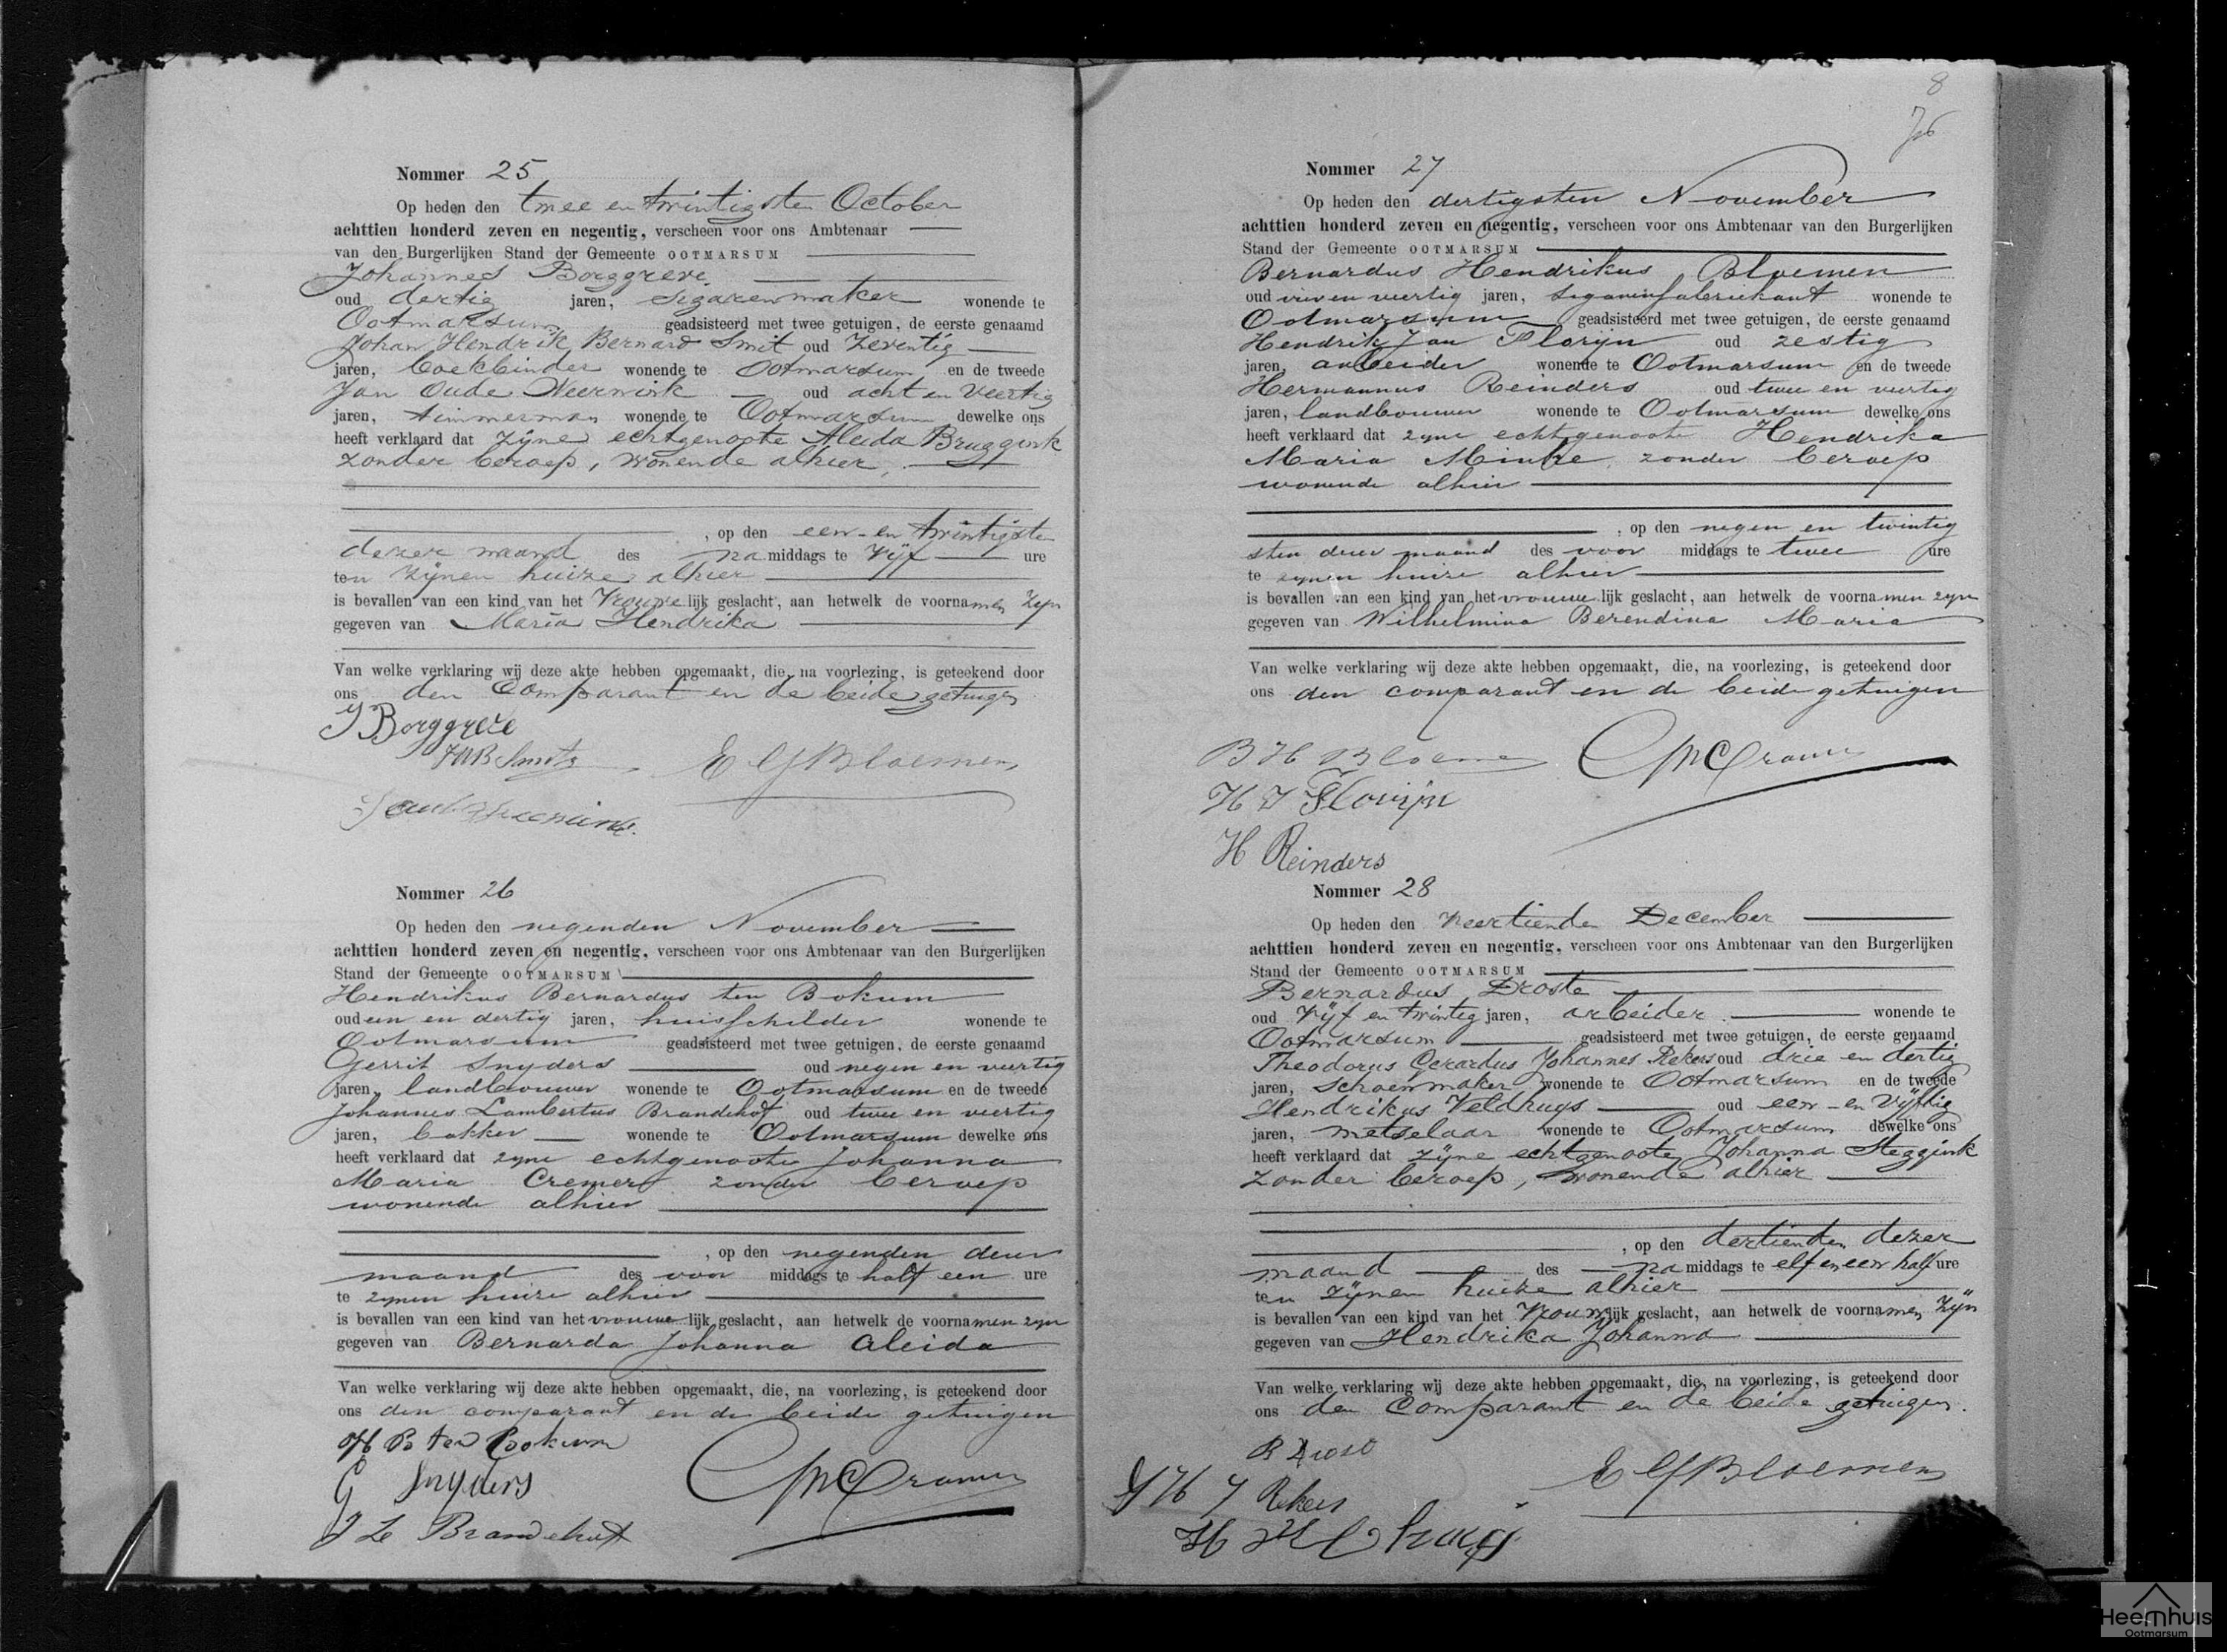 Nommer 25
Op heden den twee en twintigsten October
achttien honderd zeven en negentig, verscheen voor ons Ambtenaar
van den Burgerlijken Stand der Gemeente OOTMARSUM
Johannes Borggreve
oud dertig jaren, Segarenmaker wonende te
Ootmarsum geadsisteerd met twee getuigen, de eerste genaamd
Johan Hendrik Bernard Smit oud Zeventig
jaren, boekbinder wonende te Ootmarsum en de tweede
Jan Oude Weernink oud acht en veertig
jaren, timmerman wonende te Ootmarsum dewelke ons
heeft verklaard dat zijne echtgenoote Aleida Bruggink
zonder beroep, wonende alhier,
, op den een en twintigste
dezer maand des na middags te vijf ure
ten zijnen huize alhier
is bevallen van een kind van het Vrouwelijk geslacht, aan hetwelk de voornamen zijn
gegeven van Maria Hendrika
Van welke verklaring wij deze akte hebben opgemaakt, die, na voorlezing, is geteekend door
ons den Comparant en de beide getuigen
J Borggreve
JHB Smit
E G J Bloemen
Nommer 26
Op heden den negenden November
achttien honderd zeven en negentig, verscheen voor ons Ambtenaar van den Burgerlijken
Stand der Gemeente OOTMARSUM
Hendrikus Bernardus ten Bokum
oud een en dertig jaren, huisschilder wonende te
Ootmarsum geadsisteerd met twee getuigen, de eerste genaamd
Gerrit Snyders oud negen en veertig
jaren, landbouwer wonende te Ootmarsum en de tweede
Johannes Lambertus Brandehof oud twee en veertig
jaren, bakker wonende te Ootmarsum dewelke ons
heeft verklaard dat zyne echtgenoote Johanna
Maria Cremers zonder beroep
wonende alhier
, op den negenden dezer
maand des voor middags te half een ure
te zynen huize alhier
is bevallen van een kind van het vrouwelijk geslacht, aan hetwelk de voornamen zyn
gegeven van Bernarda Johanna Aleida
Van welke verklaring wij deze akte hebben opgemaakt, die, na voorlezing, is geteekend door
ons den comparant en de beide getuigen
H B ten Bokum
G Snyders
J L Brandehof
Cramer
8
76
Nommer 27
Op heden den dertigsten November
achttien honderd zeven en negentig, verscheen voor ons Ambtenaar van den Burgerlijken
Stand der Gemeente OOTMARSUM
Bernardus Hendrikus Bloemen
oud vier en veertig jaren, segarenfabriekant wonende te
Ootmarsum geadsisteerd met twee getuigen, de eerste genaamd
Hendrik Jan Floryn oud zestig
jaren, arbeider wonende te Ootmarsum en de tweede
Hermannus Reinders oud twee en veertig
jaren, landbouwer wonende te Ootmarsum dewelke ons
heeft verklaard dat zyne echtgenoote Hendrika
Maria zonder beroep
wonende alhier
, op den negen en twintig
sten dezer maand des voor middags te twee ure
te zynen huize alhier
is bevallen van een kind van het vrouwelijk geslacht, aan hetwelk de voornamen zyn
gegeven van Wilhelmina Berendina Maria
Van welke verklaring wij deze akte hebben opgemaakt, die, na voorlezing, is geteekend door
ons den comparant en de beide getuigen
B H Bloemen
Cramer
H J Florijn
H Reinders
Nommer 28
Op heden den Veertiende December
achttien honderd zeven en negentig, verscheen voor ons Ambtenaar van den Burgerlijken
Stand der Gemeente OOTMARSUM
Bernardus Droste
oud Vijf en twintig jaren, arbeider wonende te
Ootmarsum geadsisteerd met twee getuigen, de eerste genaamd
Theodorus Gerardus Johannes Rekers oud drie en dertig
jaren, Schoenmaker wonende te Ootmarsum en de tweede
Hendrikus Veldhuys oud een en Vijftig
jaren, metselaar wonende te Ootmarsum dewelke ons
heeft verklaard dat zijne echtgenoote Johanna Steggink
zonder beroep, wonende alhier
, op den dertienden dezer
maand des na middags te elf en een half ure
ten zijnen huize alhier
is bevallen van een kind van het Vrouwlijk geslacht, aan hetwelk de voornamen zijn
gegeven van Hendrika Johanna
Van welke verklaring wij deze akte hebben opgemaakt, die, na voorlezing, is geteekend door
ons den Comparant en de beide getuigen.
B Drost
Rekers
E G J Bloemen
Heemhuis
Ootmarsum